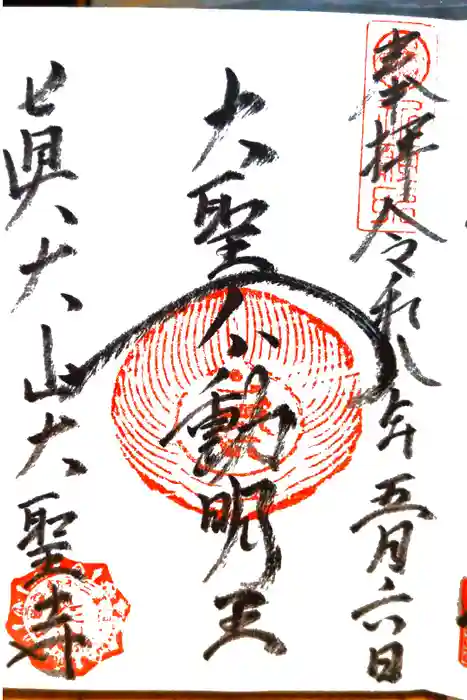 奉拝 令和八年五月六日
大聖不動明王
大山大聖寺